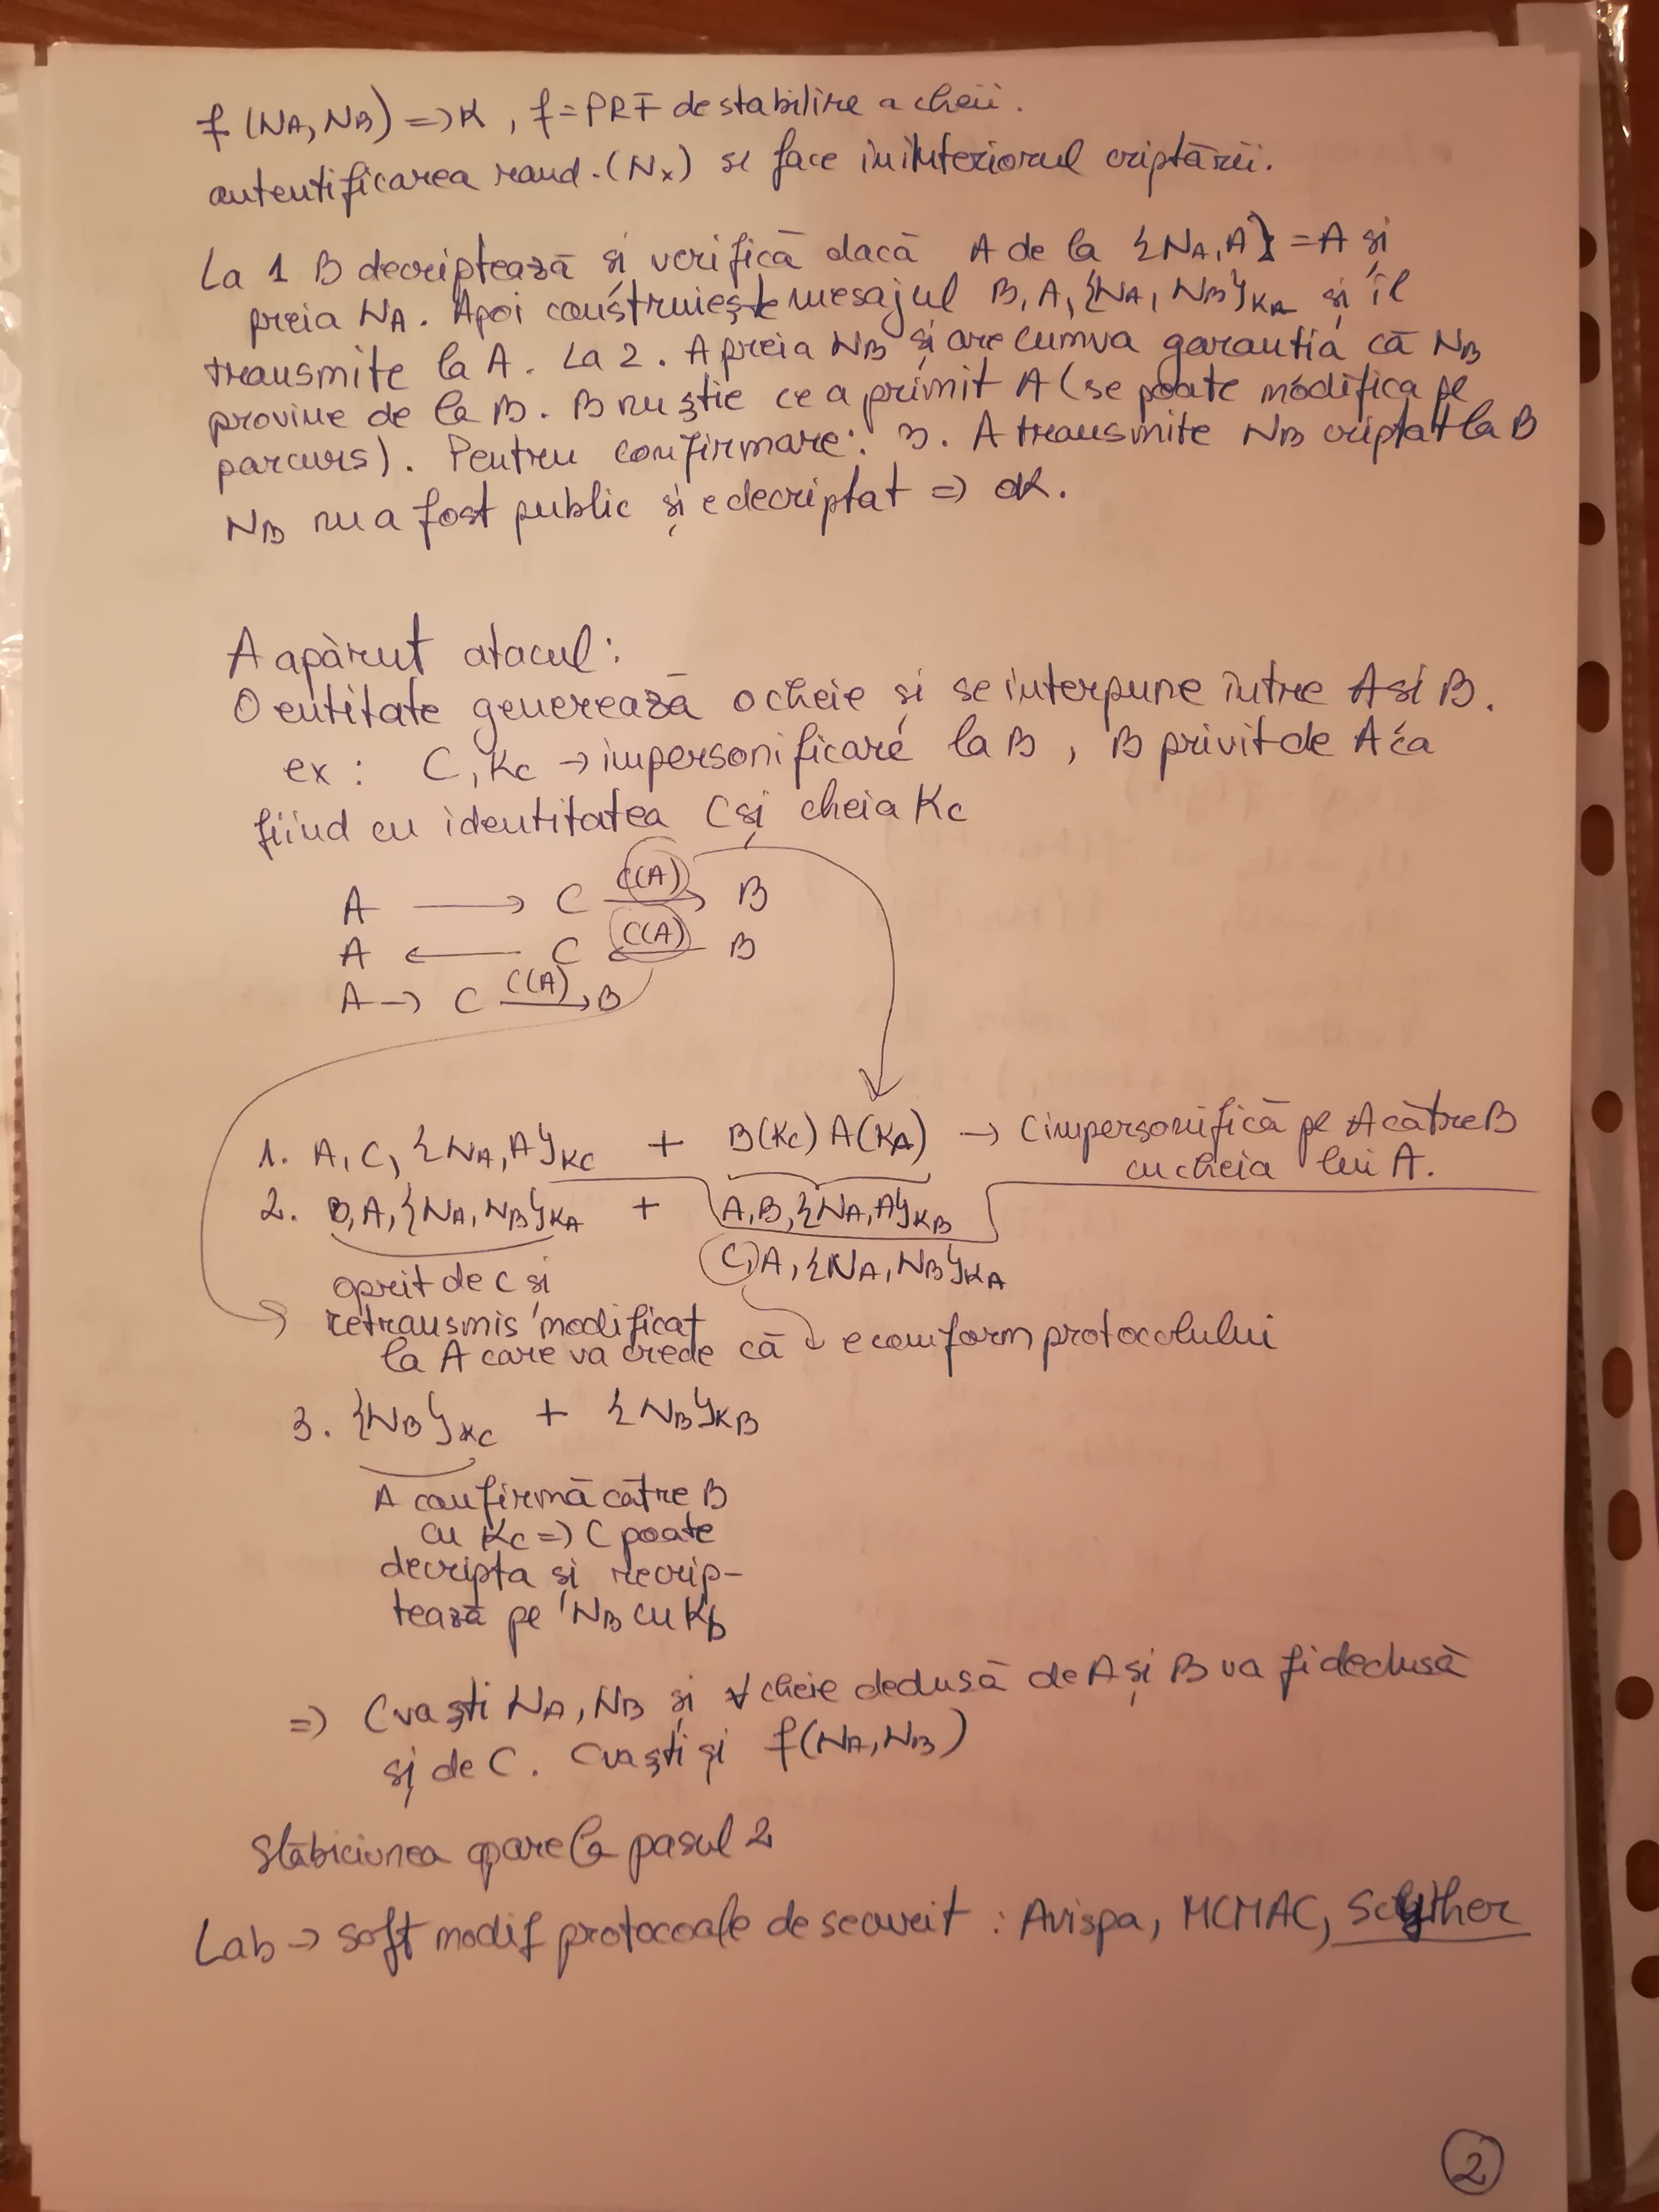 f(NA, NB) => K, f = PRF de stabilire a cheii.
autentificarea rand. (Nx) se face in interiorul criptării.
La 1 B decriptează și verifică dacă A de la {NA, A} = A și
preia NA. Apoi construiește mesajul B, A, {NA, NB}KA și îl
transmite la A. La 2. A preia NB și are cumva garantia că NB
provine de la B. B nu știe ce a primit A (se poate modifica pe
parcurs). Pentru confirmare: 3. A transmite NB criptat la B
NB nu a fost public și e decriptat => OK.
A apărut atacul:
O entitate generează o cheie și se interpune între A si B.
ex: C, Kc → impersonificare la B, B privit de A ca
fiind cu identitatea C și cheia Kc
A → C C(A) → B
A ← C C(A) ← B
A → C C(A) → B
1. A, C, {NA, A}KC + B(Kc) A(KA) → C impersonifică pe A către B
cu cheia lui A.
2. B, A, {NA, NB}KA + A, B, {NA, A}KB
C, A, {NA, NB}KA
oprit de C si
retransmis modificat
la A care va crede că e conform protocolului
3. {NB}KC + {NB}KB
A confirmă către B
cu Kc => C poate
decripta și recrip-
tează pe NB cu Kb
=> C va ști NA, NB și ∀ cheie dedusă de A și B va fi dedusă
și de C. C va ști și f(NA, NB)
Slăbiciunea apare la pasul 2
Lab → soft modif protocoale de securit: Avispa, MCMAC, Scyther
2